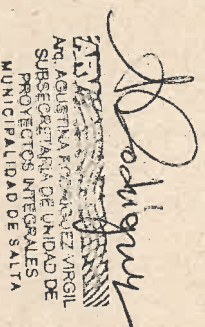 Rodriguez
Arq. AGUSTINA RODRIGUEZ VIRGILI
SUBSECRETARIA DE UNIDAD DE
PROYECTOS INTEGRALES
MUNICIPALIDAD DE SALTA